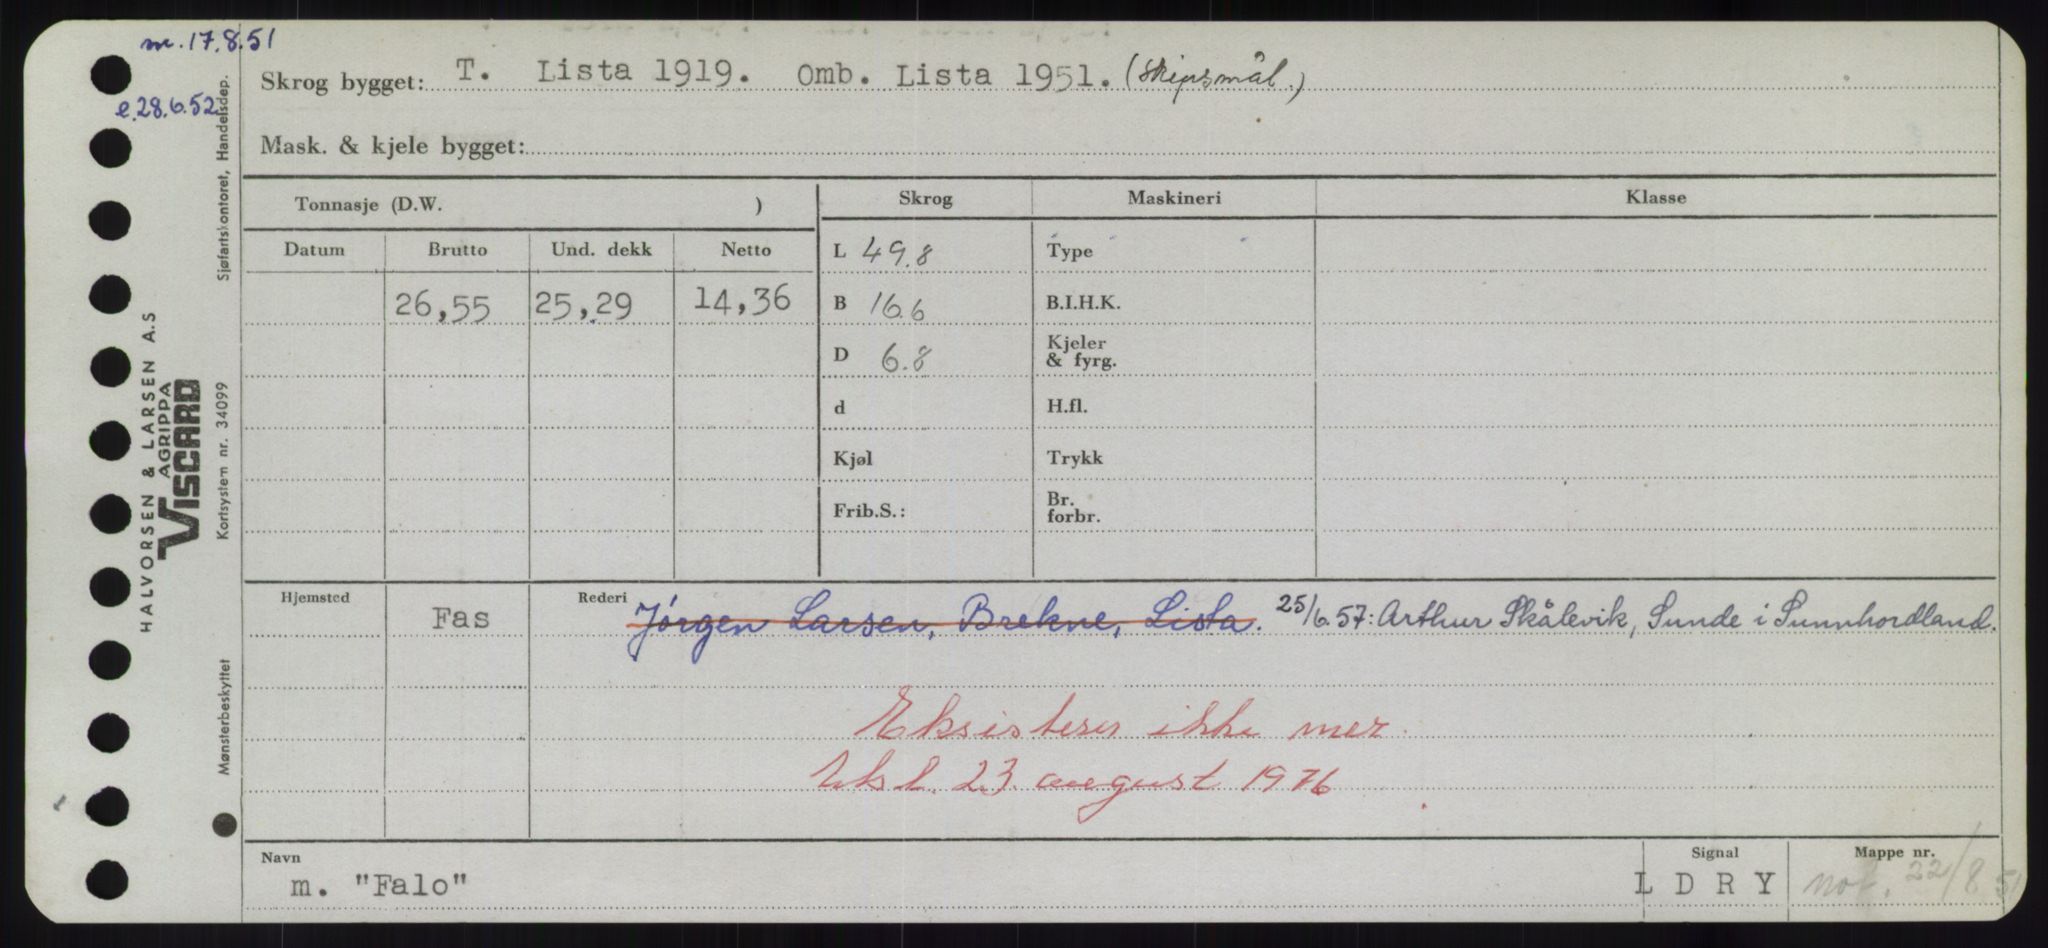 m. 17.8.51
e. 28.6.52
Skrog bygget: T. Lista 1919. Omb. Lista 1951. (Skipsmål.)
Mask. & kjele bygget:
Tonnasje (D.W. )
Skrog Maskineri Klasse
Datum Brutto Und. dekk Netto
L 49.8 Type
26,55 25,29 14,36
B 16.6 B.I.H.K.
D 6.8 Kjeler
& fyrg.
d H.fl.
Kjøl Trykk
Frib.S.: Br.
forbr.
Hjemsted Fas Rederi Jørgen Larsen, Brekne, Lista. 25/6.57: Arthur Skålevik, Sunde i Sunnhordland.
Eksisterer ikke mer.
23. august 1976
Navn Signal Mappe nr.
m. "Falo" L D R Y not. 22/8 51
HALVORSEN & LARSEN A.S
AGRIPPA
VISCARD
Mønsterbeskyttet Kortsystem nr. 34099 Sjøfartskontoret, Handelsdep.